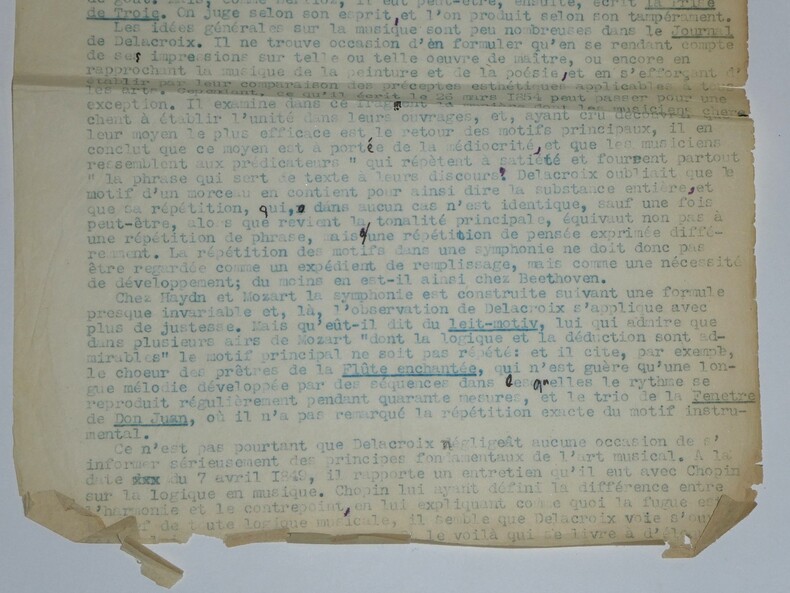 de goût. Mais, comme Berlioz, il eût peut-être, ensuite, écrit la Prise
de Troie. On juge selon son esprit, et l'on produit selon son tampérament.
Les idées générales sur la musique sont peu nombreuses dans le Journal
de Delacroix. Il ne trouve occasion d'en formuler qu'en se rendant compte
de ses impressions sur telle ou telle oeuvre de maître, ou encore en
rapprochant la musique de la peinture et de la poésie, et en s'efforçant d'
établir par leur comparaison des préceptes esthétiques applicables à
les arts. Cependant, ce qu'il écrit le 26 mars 1854 peut passer pour une
exception. Il examine dans ce fragment les musiciens cher-
chent à établir l'unité dans leurs ouvrages, et, ayant cru que
leur moyen le plus efficace est le retour des motifs principaux, il en
conclut que ce moyen est à portée de la médiocrité, et que les musiciens
ressemblent aux prédicateurs " qui répètent à satiété et fourrent partout
" la phrase qui sert de texte à leurs discours". Delacroix oubliait que le
motif d'un morceau en contient pour ainsi dire la substance entière, et
que sa répétition, qui, dans aucun cas n'est identique, sauf une fois
peut-être, alors que revient la tonalité principale, équivaut non pas à
une répétition de phrase, mais à une répétition de pensée exprimée diffé-
remment. La répétition des motifs dans une symphonie ne doit donc pas
être regardée comme un expédient de remplissage, mais comme une nécessité
de développement; du moins en est-il ainsi chez Beethoven.
Chez Haydn et Mozart la symphonie est construite suivant une formule
presque invariable et, là, l'observation de Delacroix s'applique avec
plus de justesse. Mais qu'eût-il dit du leit-motiv, lui qui admire que
dans plusieurs airs de Mozart "dont la logique et la déduction sont ad-
mirables" le motif principal ne soit pas répété: et il cite, par exemple,
le choeur des prêtres de la Flûte enchantée, qui n'est guère qu'une lon-
gue mélodie développée par des séquences dans lesquelles le rythme se
reproduit régulièrement pendant quarante mesures, et le trio de la Fenetre
de Don Juan, où il n'a pas remarqué la répétition exacte du motif instru-
mental.
Ce n'est pas pourtant que Delacroix négligeât aucune occasion de s'
informer sérieusement des principes fondamentaux de l'art musical. A la
date xxx du 7 avril 1849, il rapporte un entretien qu'il eut avec Chopin
sur la logique en musique. Chopin lui ayant défini la différence entre
l'harmonie et le contrepoint, en lui expliquant comme quoi la fugue est
de toute logique musicale, il semble que Delacroix voie s'ouv
le voilà qui se livre à